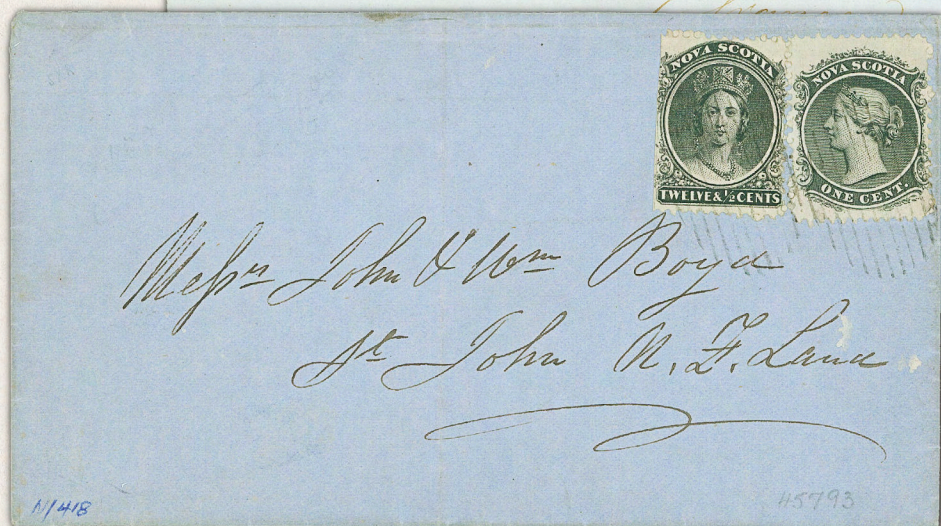 NOVA SCOTIA
TWELVE & ½ CENTS
NOVA SCOTIA
ONE CENT.
Messrs John & Wm Boyd
St John N. F. Land
N1418
45793